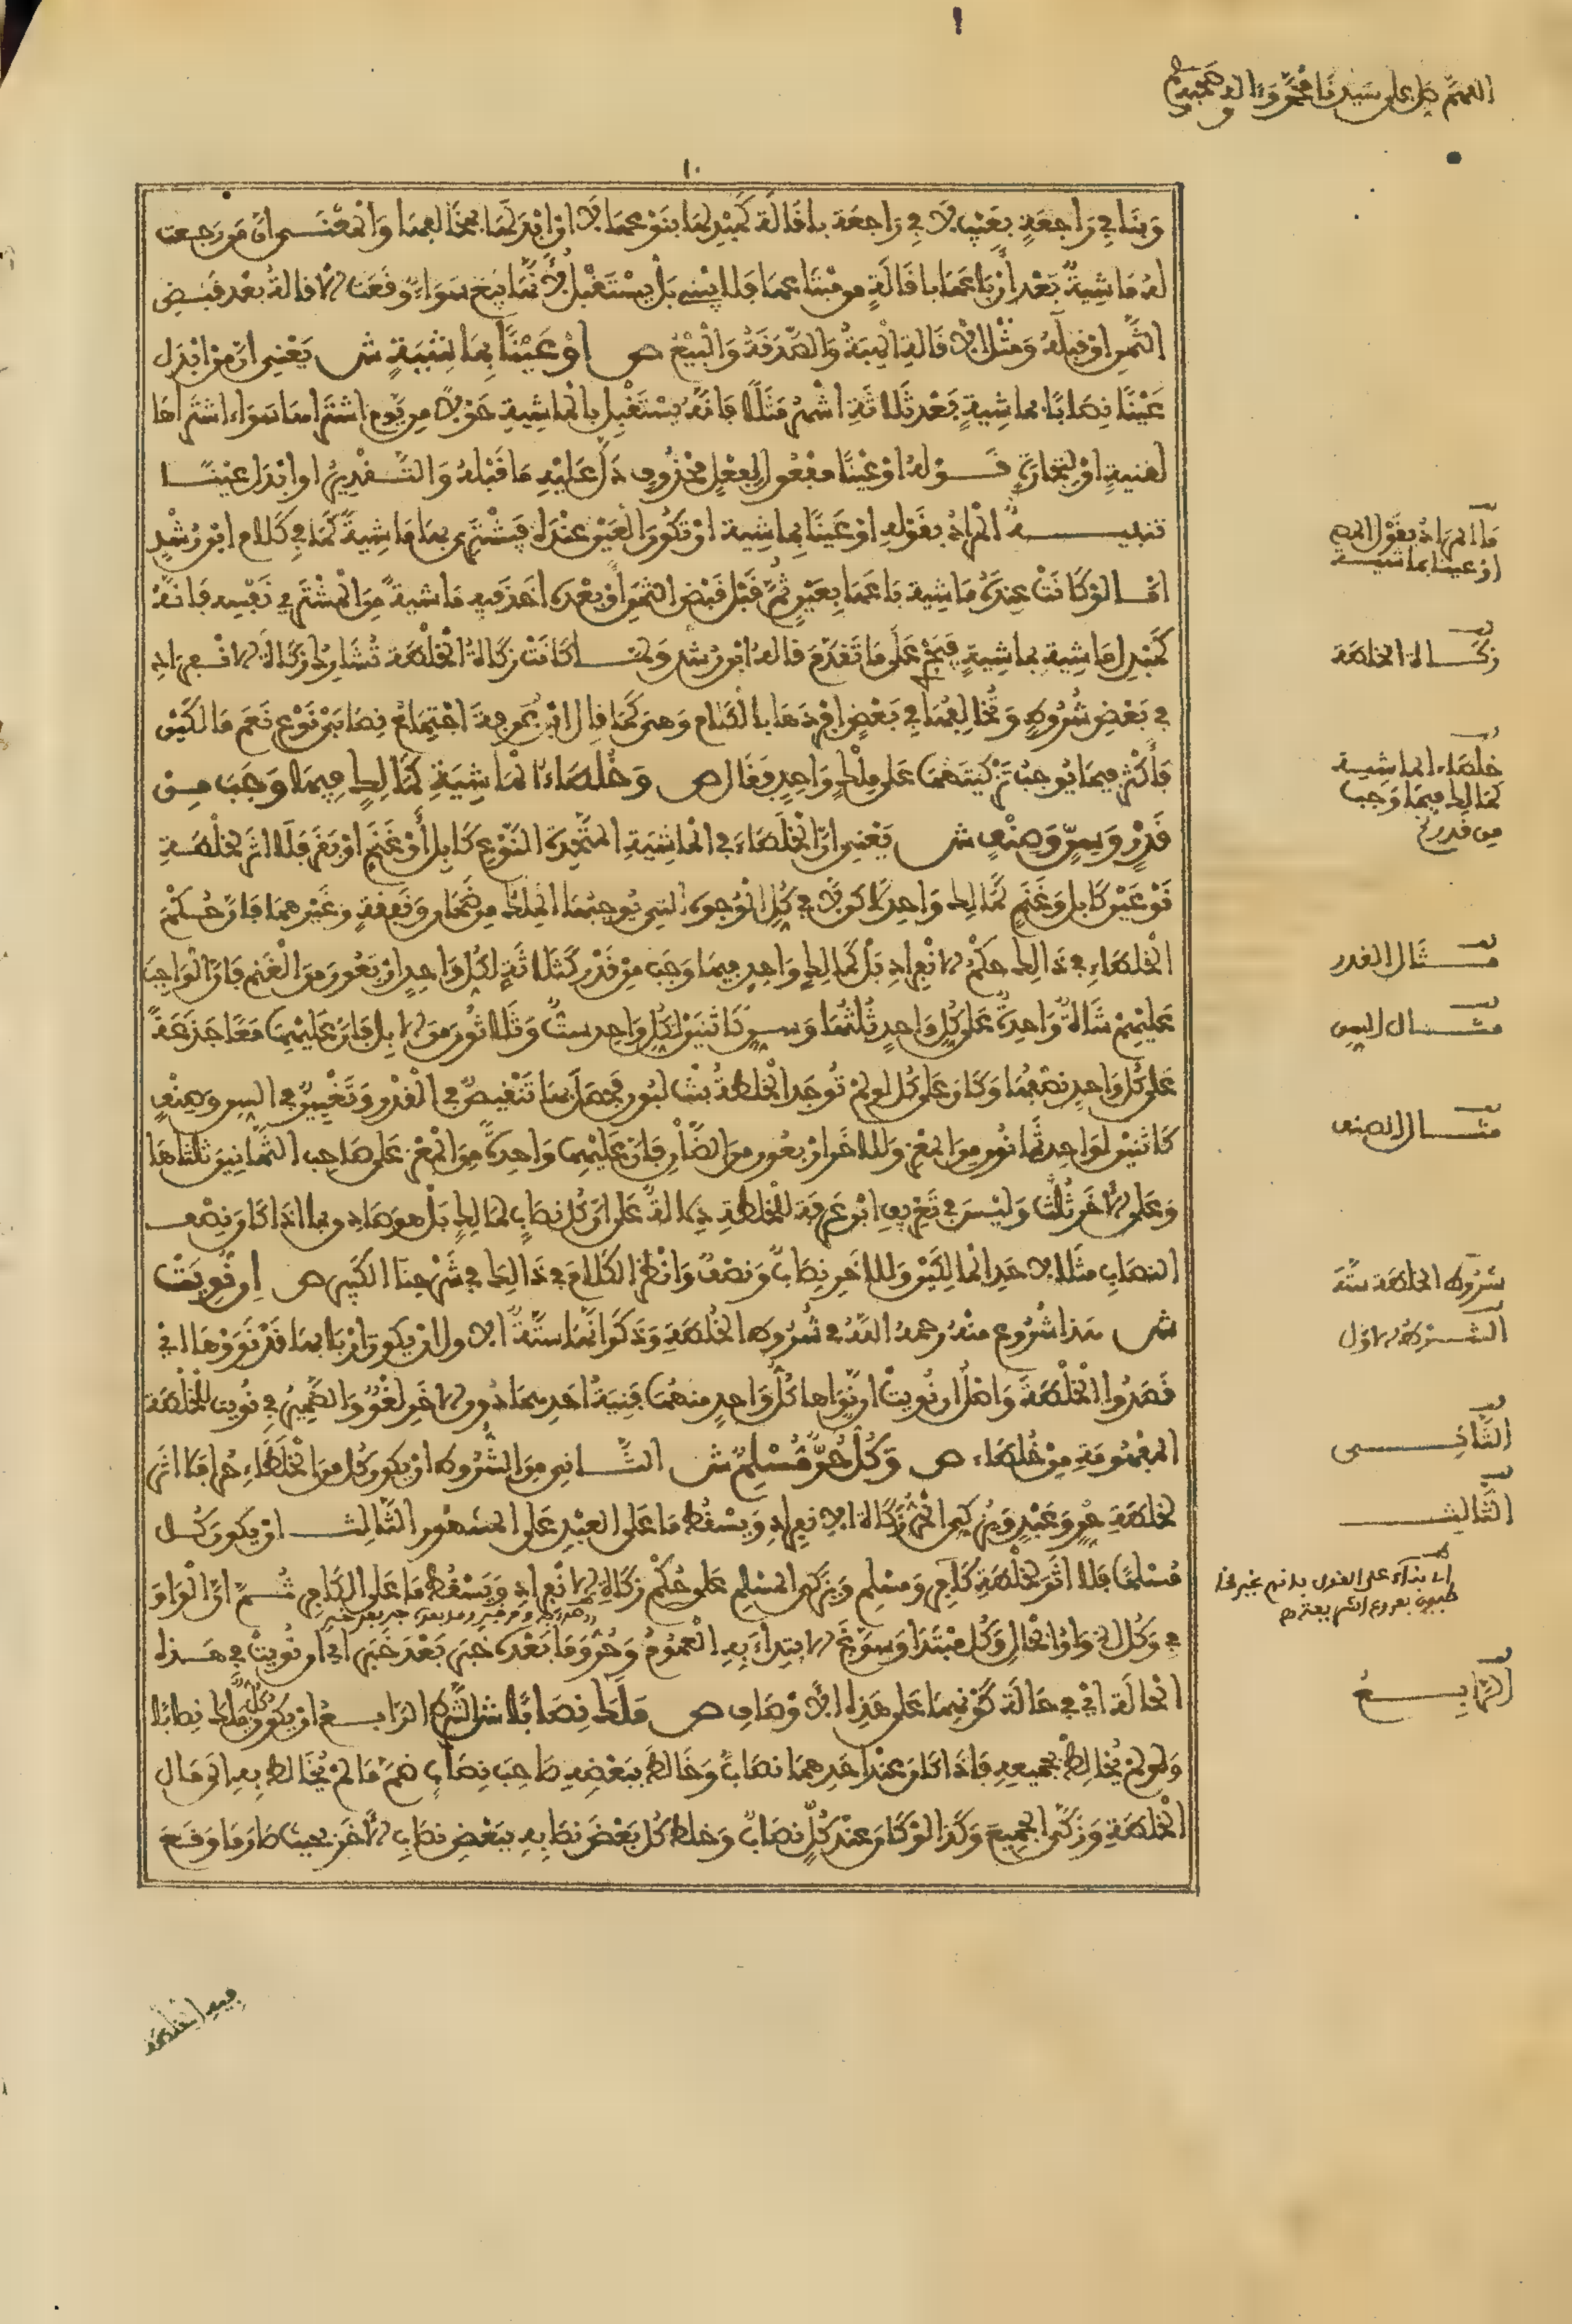 اللهم صل على سيدنا محمد وءاله وصحبه
وبنا في راجعة بعيب لا في راجعة باقالة كمبدل ماشية بنوعها لا او ابدلها بمخالفها والمعنى ان من رجعت
له ماشية بعد أن باعها باقالة من مبتاعها فلا يبني بل يستقبل لأنها بيع سواء وقعت الاقالة بعد قبض
الثمن او قبله ومثل الاقالة الهبة والصدقة والبيع ص او عينا بماشية ش يعني ان من ابدل
عينا نصابا بماشية بعد ثلاثة اشهر مثلا فانه يستقبل بالماشية حولا من يوم اشتراها سواء اشتراها
لقنية او لتجارة قوله او عينا مفعول لفعل محذوف دل عليه ما قبله والتقدير او ابدل عينا
تنبيه المراد بقوله او عينا بماشية ان تكون العين عنده فيشتري بها ماشية كما في كلام ابن رشد
اما لو كانت عنده ماشية باعها بعين ثم قبل قبض الثمن او بعده اخذ فيه ماشية من المشتري نفسه فانه
كمبدل ماشية بماشية فيجري على ما تقدم قاله ابن رشد ولما كانت زكاة الخلطة تشارك زكاة الانفراد
في بعض شروطه وتخالفها في بعض افردها بالكلام وهي كما قال ابن عرفة اجتماع نصابي نوع نعم مالكين
فأكثر فيما يوجب تزكيتهما على ملك واحد فقال ص وخلطاء الماشية كمالك فيما وجب من
قدر وسن وصنف ش يعني ان الخلطاء في الماشية المتحدة النوع كابل أو غنم او بقر فلا اثر لخلطة
نوعين كابل وغنم كمالك واحد لا في كل الوجوه التي يوجبها الملك من ضمان ونفقة وغيرهما فان حكم
الخلطاء في ذالك حكم الانفراد بل كمالك واحد فيما وجب من قدر كثلاثة لكل واحد اربعون من الغنم فان الواجب
عليهم شاة واحدة على كل واحد ثلثها وسن كاثنين لكل واحد ست وثلاثون من الابل فان عليهما معا جذعة
على كل واحد نصفها وكان على كل لو لم توجد الخلطة بنت لبون فحصل بها تنقيص في القدر وتغيير في السن وصنف
كاثنين لواحد ثمانون من المعز وللاخر اربعون من الضأن فان عليهما واحدة من المعز على صاحب الثمانين ثلثاها
وعلى الاخر ثلث وليس في تعريف ابن عرفة للخلطة دلالة على ان كل نصاب لمالك بل هو صادق بما اذا كان نصف
النصاب مثلا لاحد المالكين وللاخر نصاب ونصف وانظر الكلام في ذالك في شرحنا الكبير ص ان نويت
ش هذا شروع منه رحمه الله في شروط الخلطة وذكر انها ستة الاول ان يكون اربابها قد نووها اي
قصدوا الخلطة واصل ان نويت ان نواها كل واحد منهما فنية احدهما دون الاخر لغو والضمير في نويت للخلطة
المفهومة من خلطاء ص وكل حر مسلم ش الثاني من الشروط ان يكون كل من الخلطاء حرا فلا اثر
لخلطة حر وعبد ويزكي الحر زكاة الانفراد ويسقط ما على العبد على المشهور الثالث ان يكون كل
مسلما فلا اثر لخلطة كافر ومسلم ويزكي المسلم على حكم زكاة الانفراد ويسقط ما على الكافر ثم ان الواو
في وكل حر واو الحال وكل مبتدا وسوغ الابتداء به العموم وحر وما بعده خبر بعد خبر اي ان نويت في هذه
الحالة اي في حالة كونهما على هذه الاوصاف ص ملك نصابا ش الشرط الرابع ان يكون كل ملك نصابا
ولو لم يخالط بجميعه فاذا كان عند احدهما نصاب وخالط ببعضه صاحب نصاب ضم ما لم يخالط به الى مال
الخلطة وزكى الجميع وكذا لو كان عند كل نصاب وخلط كل بعض نصابه ببعض نصاب الاخر بحيث صار ما وقع
فيه الخلطة
ما المراد بقول المص
او عينا بماشية
زكاة الخلطة
خلطاء الماشية
كمالك فيما وجب
من قدر الخ
مثال القدر
مثال السن
مثال الصنف
شروط الخلطة ستة
الشرط الاول
الثاني
الثالث
الرابع